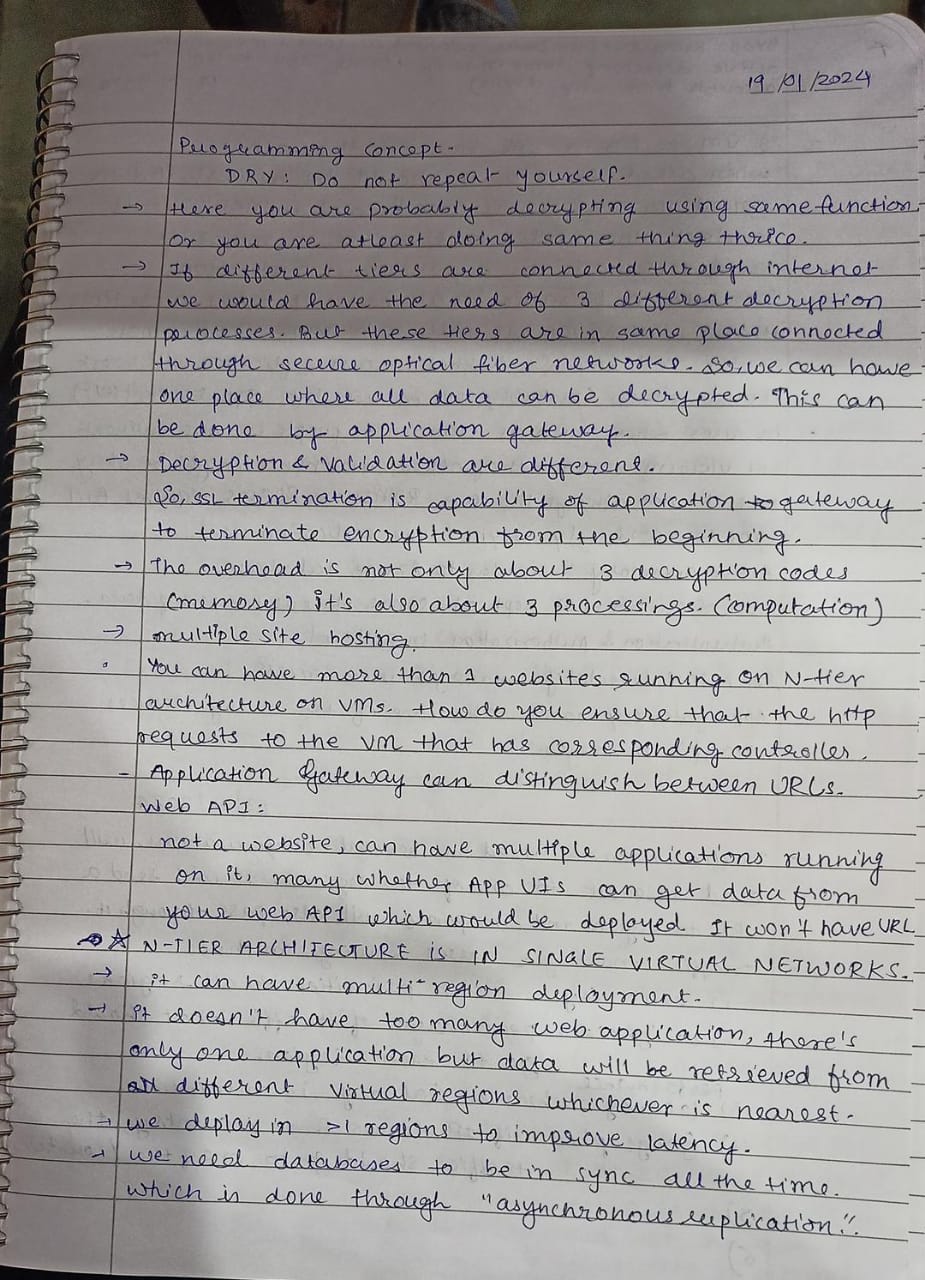 19/01/2024
Programming Concept -
DRY: Do not repeat yourself.
→ Here you are probably decrypting using same function
or you are atleast doing same thing thrice.
→ If different tiers are connected through internet
we would have the need of 3 different decryption
processes. But these tiers are in same place connected
through secure optical fiber networks. So, we can have
one place where all data can be decrypted. This can
be done by application gateway.
→ Decryption & Validation are different.
So, SSL termination is capability of application to gateway
to terminate encryption from the beginning.
→ The overhead is not only about 3 decryption codes
(memory) it's also about 3 processings. (computation)
→ multiple site hosting.
• You can have more than 1 websites running on N-tier
architecture on VMs. How do you ensure that the http
requests to the VM that has corresponding controller.
- Application Gateway can distinguish between URLs.
Web API:
not a website, can have multiple applications running
on it, many whether App UIs can get data from
your web API which would be deployed It won't have URL
→ ☆ N-TIER ARCHITECTURE is IN SINGLE VIRTUAL NETWORKS.
→ it can have multi-region deployment.
→ it doesn't have too many web application, there's
only one application but data will be retrieved from
all different virtual regions whichever is nearest.
→ we deplay in >1 regions to improve latency.
→ we need databases to be in sync all the time.
which is done through "asynchronous replication".